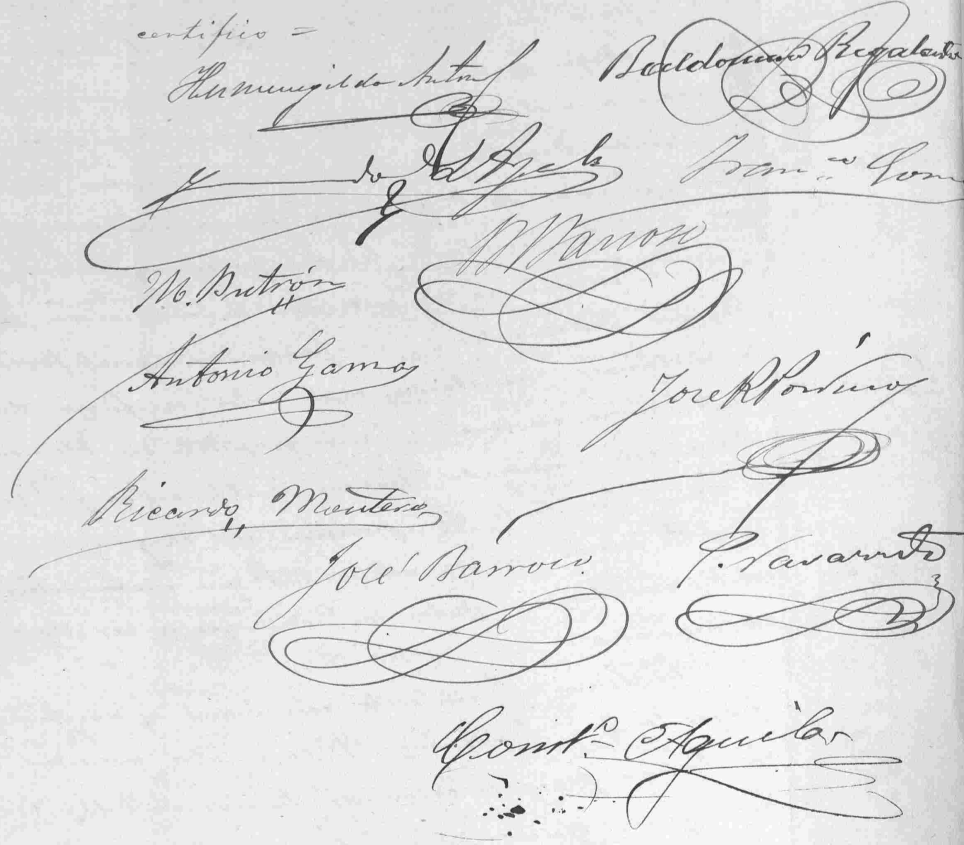 certifico =
Hermenegildo Anton
Baldomero Regalado
Fran.co Gom
M. Barroso
M. Butrón
Antonio Gamas
José R
Ricardo Montero
José Barroso
P. Navarrete
Const.o Aguilar